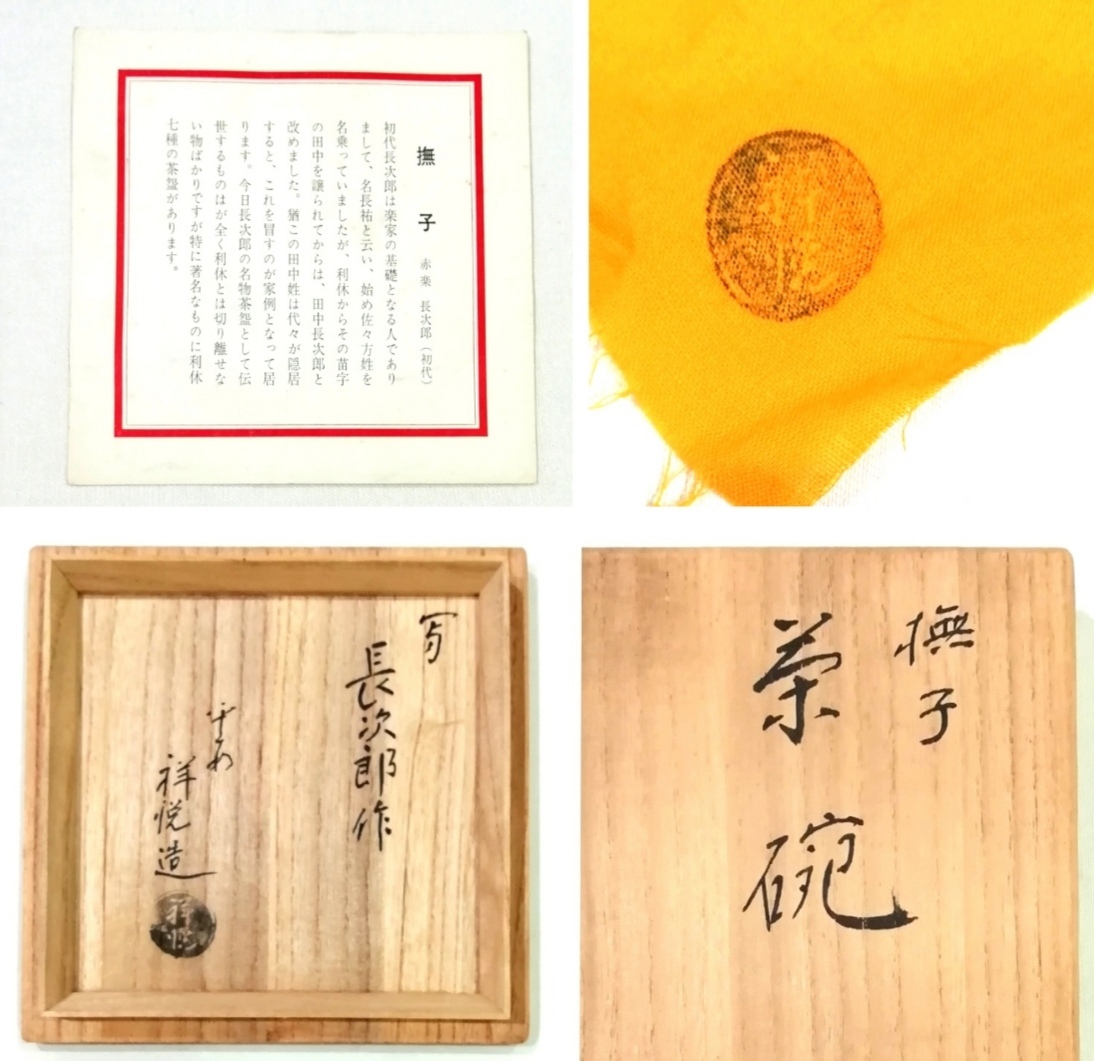 撫子 赤楽 長次郎(初代)
初代長次郎は楽家の基礎となる人であり
まして、名長祐と云い、始め佐々方姓を
名乗っていましたが、利休からその苗字
の田中を譲られてからは、田中長次郎と
改めました。猶この田中姓は代々が隠居
すると、これを冒すのが家例となって居
ります。今日長次郎の名物茶盌として伝
世するものはが全く利休とは切り離せな
い物ばかりですが特に著名なものに利休
七種の茶盌があります。
写
長次郎作
祥悦造
祥悦
撫子
茶碗